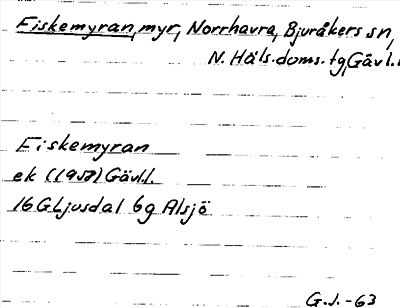 Fiskemyran, myr, Norrhavra, Bjuråkers sn,
N. Häls. doms. tg, Gävl.l.
Fiskemyran
ek (1957) Gävl.l.
16G Ljusdal 6g Alsjö
G.J. -63